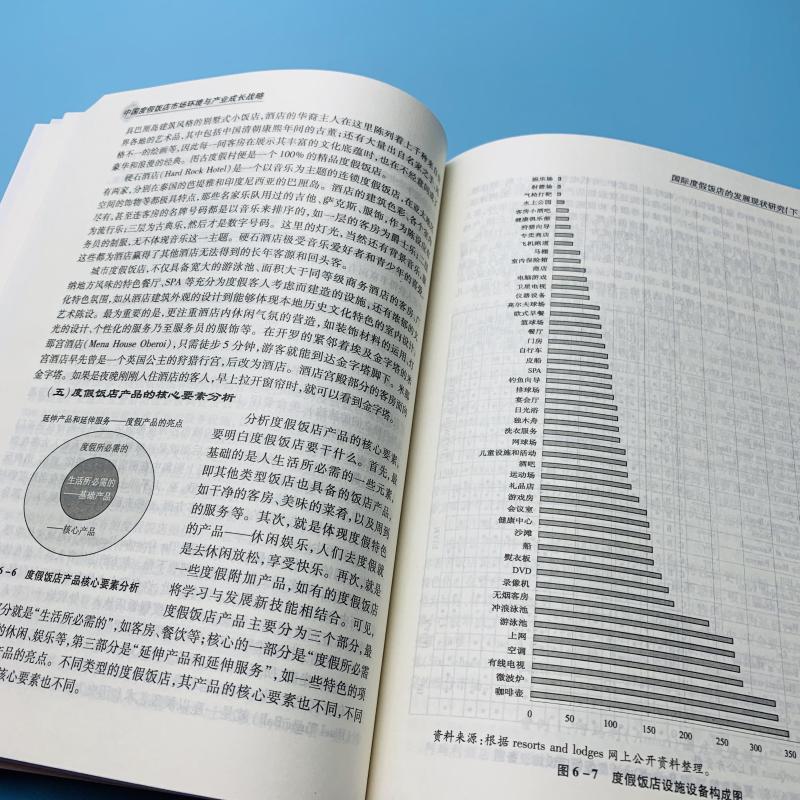 中国度假饭店市场环境与产业成长战略
具巴厘岛建筑风格的别墅式小饭店，酒店的华裔主人在这里陈列着上千种来自
界各地的艺术品，其中包括中国清朝康熙年间的古董；还有大量出自名家之手
格不一的绘画等，因此每一间客房在展示其丰富的文化底蕴时，也在不经意间
豪华和浪漫的经典。图古度假村便是一个100%的精品度假饭店。
硬石酒店(Hard Rock Hotel)是一个以音乐为主题的连锁度假饭店，在亚太地区
有两家，分别在泰国的芭堤雅和印度尼西亚的巴厘岛。酒店的建筑色彩、各
空间的饰物等都极具特点，那些名家乐队用过的吉他、萨克斯、服饰，作为陈设
存，甚至连客房的名牌号码都是以音乐来排序的，如一层的客房为爵士乐；
为流行乐；三层为古典乐，然后才是数字号码。这里的灯光，当然还有背景音乐，
务员的制服，无不体现音乐这一主题。硬石酒店极受音乐爱好者和青少年的喜爱，
这些都为酒店赢得了其他酒店无法得到的长年客源和回头客。
城市度假饭店，不仅具备宽大的游泳池、面积大于同等级商务酒店的客房、
纳地方风味的特色餐厅、SPA 等充分为度假客人考虑而建造的设施，还有浓郁的
化特色氛围，如从酒店建筑外观的设计到能够体现本地历史文化特色的室内设计、
艺术陈设。最为重要的是，更注重酒店内休闲气氛的营造，如装饰材料的运用、灯
光的设计、个性化的服务乃至服务员的服饰等。在开罗的紧邻着埃及金字塔的米
那宫酒店(Mena House Oberoi)，只需徒步 5 分钟，游客就能到达金字塔脚下。米那
宫酒店早先曾是一个英国公主的狩猎行宫，后改为酒店。酒店宫殿部分的客房面向
金字塔。如果是夜晚刚刚入住酒店的客人，早上拉开窗帘时，就可以看到金字塔。
(五) 度假饭店产品的核心要素分析
延伸产品和延伸服务——度假产品的亮点
度假所必需的
生活所必需的
——基础产品
——核心产品
6-6 度假饭店产品核心要素分析
分析度假饭店产品的核心要素，
要明白度假饭店要干什么。首先，最
基础的是人生活所必需的一些元素，
即其他类型饭店也具备的饭店产品，
如干净的客房、美味的菜肴，以及周到
的服务等。其次，就是体现度假特色
的产品——休闲娱乐，人们去度假就
是去休闲放松，享受快乐。再次，就是
一些度假附加产品，如有的度假饭店
将学习与发展新技能相结合。可见，
度假饭店产品主要分为三个部分，最
分就是“生活所必需的”，如客房、餐饮等；核心的一部分是“度假所必需
的休闲、娱乐等，第三部分是“延伸产品和延伸服务”，如一些特色的项
产品的亮点。不同类型的度假饭店，其产品的核心要素也不同，不同
核心要素也不同。
国际度假饭店的发展现状研究(下
娱乐场
射箭场
气枪打靶
水上公园
客房小酒吧
健康俱乐部
狩猎向导
专卖商店
飞机跑道
马棚
室内保险箱
商店
电脑游戏
卫星电视
仪器设备
高尔夫球场
欧式早餐
篮球场
餐厅
门房
自行车
皮船
SPA
钓鱼向导
排球场
宴会厅
日光浴
独木舟
洗衣服务
网球场
儿童设施和活动
酒吧
运动场
礼品店
游戏房
会议室
健康中心
沙滩
船
熨衣板
DVD
录像机
无烟客房
冲浪泳池
游泳池
上网
空调
有线电视
微波炉
咖啡壶
0 50 100 150 200 250 300 350
资料来源：根据 resorts and lodges 网上公开资料整理。
图 6-7 度假饭店设施设备构成图